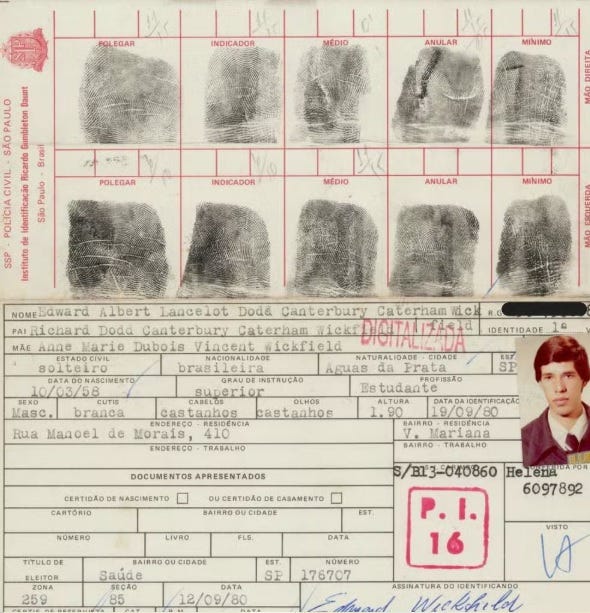 POLEGAR INDICADOR MÉDIO ANULAR MÍNIMO
MÃO DIREITA
POLEGAR INDICADOR MÉDIO ANULAR MÍNIMO
MÃO ESQUERDA
SSP - POLÍCIA CIVIL - SÃO PAULO
Instituto de Identificação Ricardo Gumbleton Daunt
São Paulo - Brasil
NOME Edward Albert Lancelot Dodd Canterbury Caterham Wick R.G.
field
PAI Richard Dodd Canterbury Caterham Wickfield IDENTIDADE 1ª V
DIGITALIZADA
MÃE Anne Marie Dubois Vincent Wickfield
ESTADO CIVIL NACIONALIDADE NATURALIDADE - CIDADE EST
solteiro brasileira Aguas da Prata SP
DATA DO NASCIMENTO GRAU DE INSTRUÇÃO PROFISSÃO
10/03/58 superior Estudante
SEXO CUTIS CABELOS OLHOS ALTURA DATA DA IDENTIFICAÇÃO
Masc. branca castanhos castanhos 1.90 19/09/80
ENDEREÇO - RESIDÊNCIA BAIRRO - RESIDÊNCIA
Rua Manoel de Morais, 410 V. Mariana
ENDEREÇO - TRABALHO BAIRRO - TRABALHO
DOCUMENTOS APRESENTADOS
S/B13-040860 Helena
POR
6097892
CERTIDÃO DE NASCIMENTO OU CERTIDÃO DE CASAMENTO
P. I.
16
CARTÓRIO BAIRRO OU CIDADE EST.
NÚMERO LIVRO FLS. DATA
VISTO
TÍTULO DE BAIRRO OU CIDADE EST. NÚMERO
ELEITOR Saúde SP 176707
ZONA SEÇÃO DATA ASSINATURA DO IDENTIFICANDO
259 85 12/09/80
Edward Wickfield